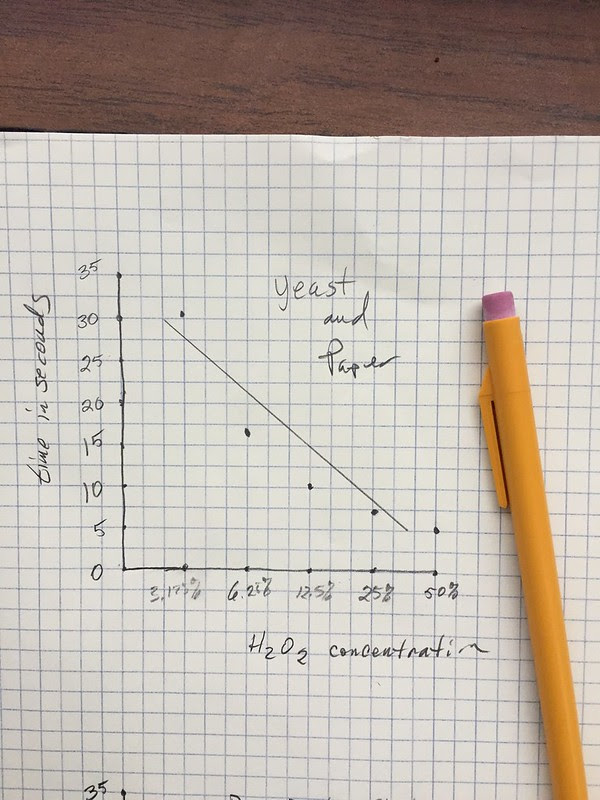 35
30
25
20
15
10
5
0
time in seconds
yeast
and
Paper
6.25% 12.5% 25% 50%
H2O2 concentration
35